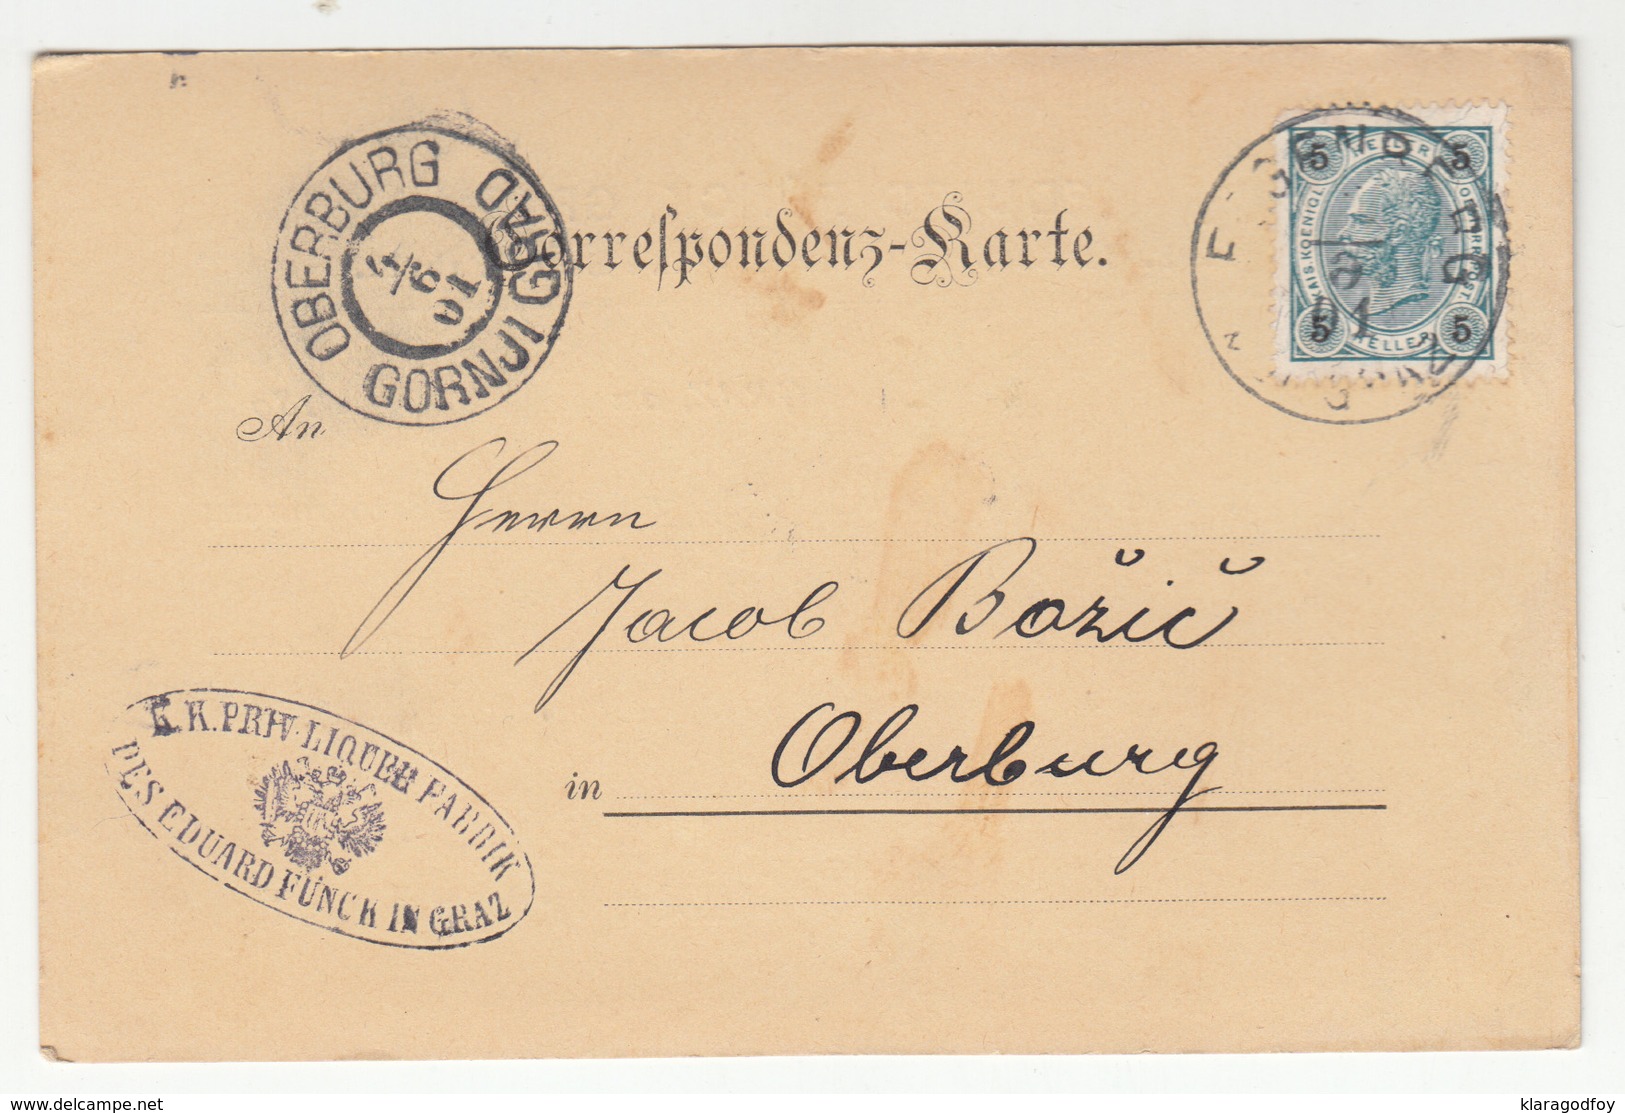 Correspondenz-Karte.
OBERBURG
GORNJI GRAD
3/6
01
5 HELLER 5
KAIS. KOENIGL.
5 HELLER 5
01
An
Herrn
Jacob Božič
in Oberburg
K. K. PRIV. LIQUEUR FABRIK
DES EDUARD FUNCK IN GRAZ
delcampe.net
klaragodfoy